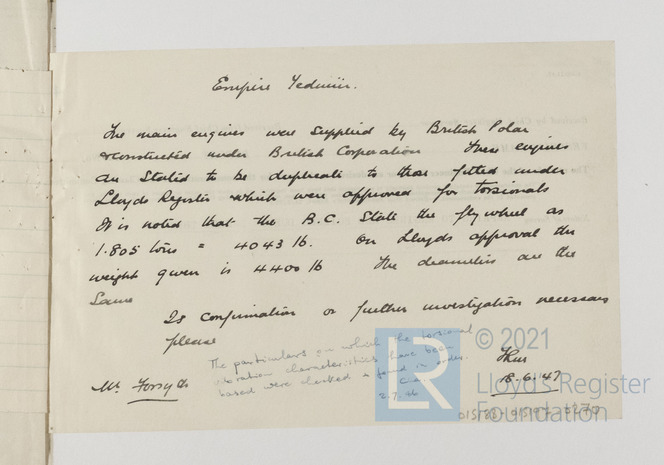 Empire Tedmuir.
The main engines were supplied by British Polar
& constructed under British Corporation These engines
are stated to be duplicate to those fitted under
Lloyds Register which were approved for torsionals
It is noted that the B.C. State the flywheel as
1.805 tons = 4043 lb. On Lloyds approval the
weight given is 4400 lb The diameters are the
Same
Is confirmation or further investigation necessary
please
The particulars on which the torsional
vibration characteristics have been
based were checked & found in order.
2.7.46
18.6.47
Mr. Forsyth
© 2021
LR
Lloyd's Register
Foundation